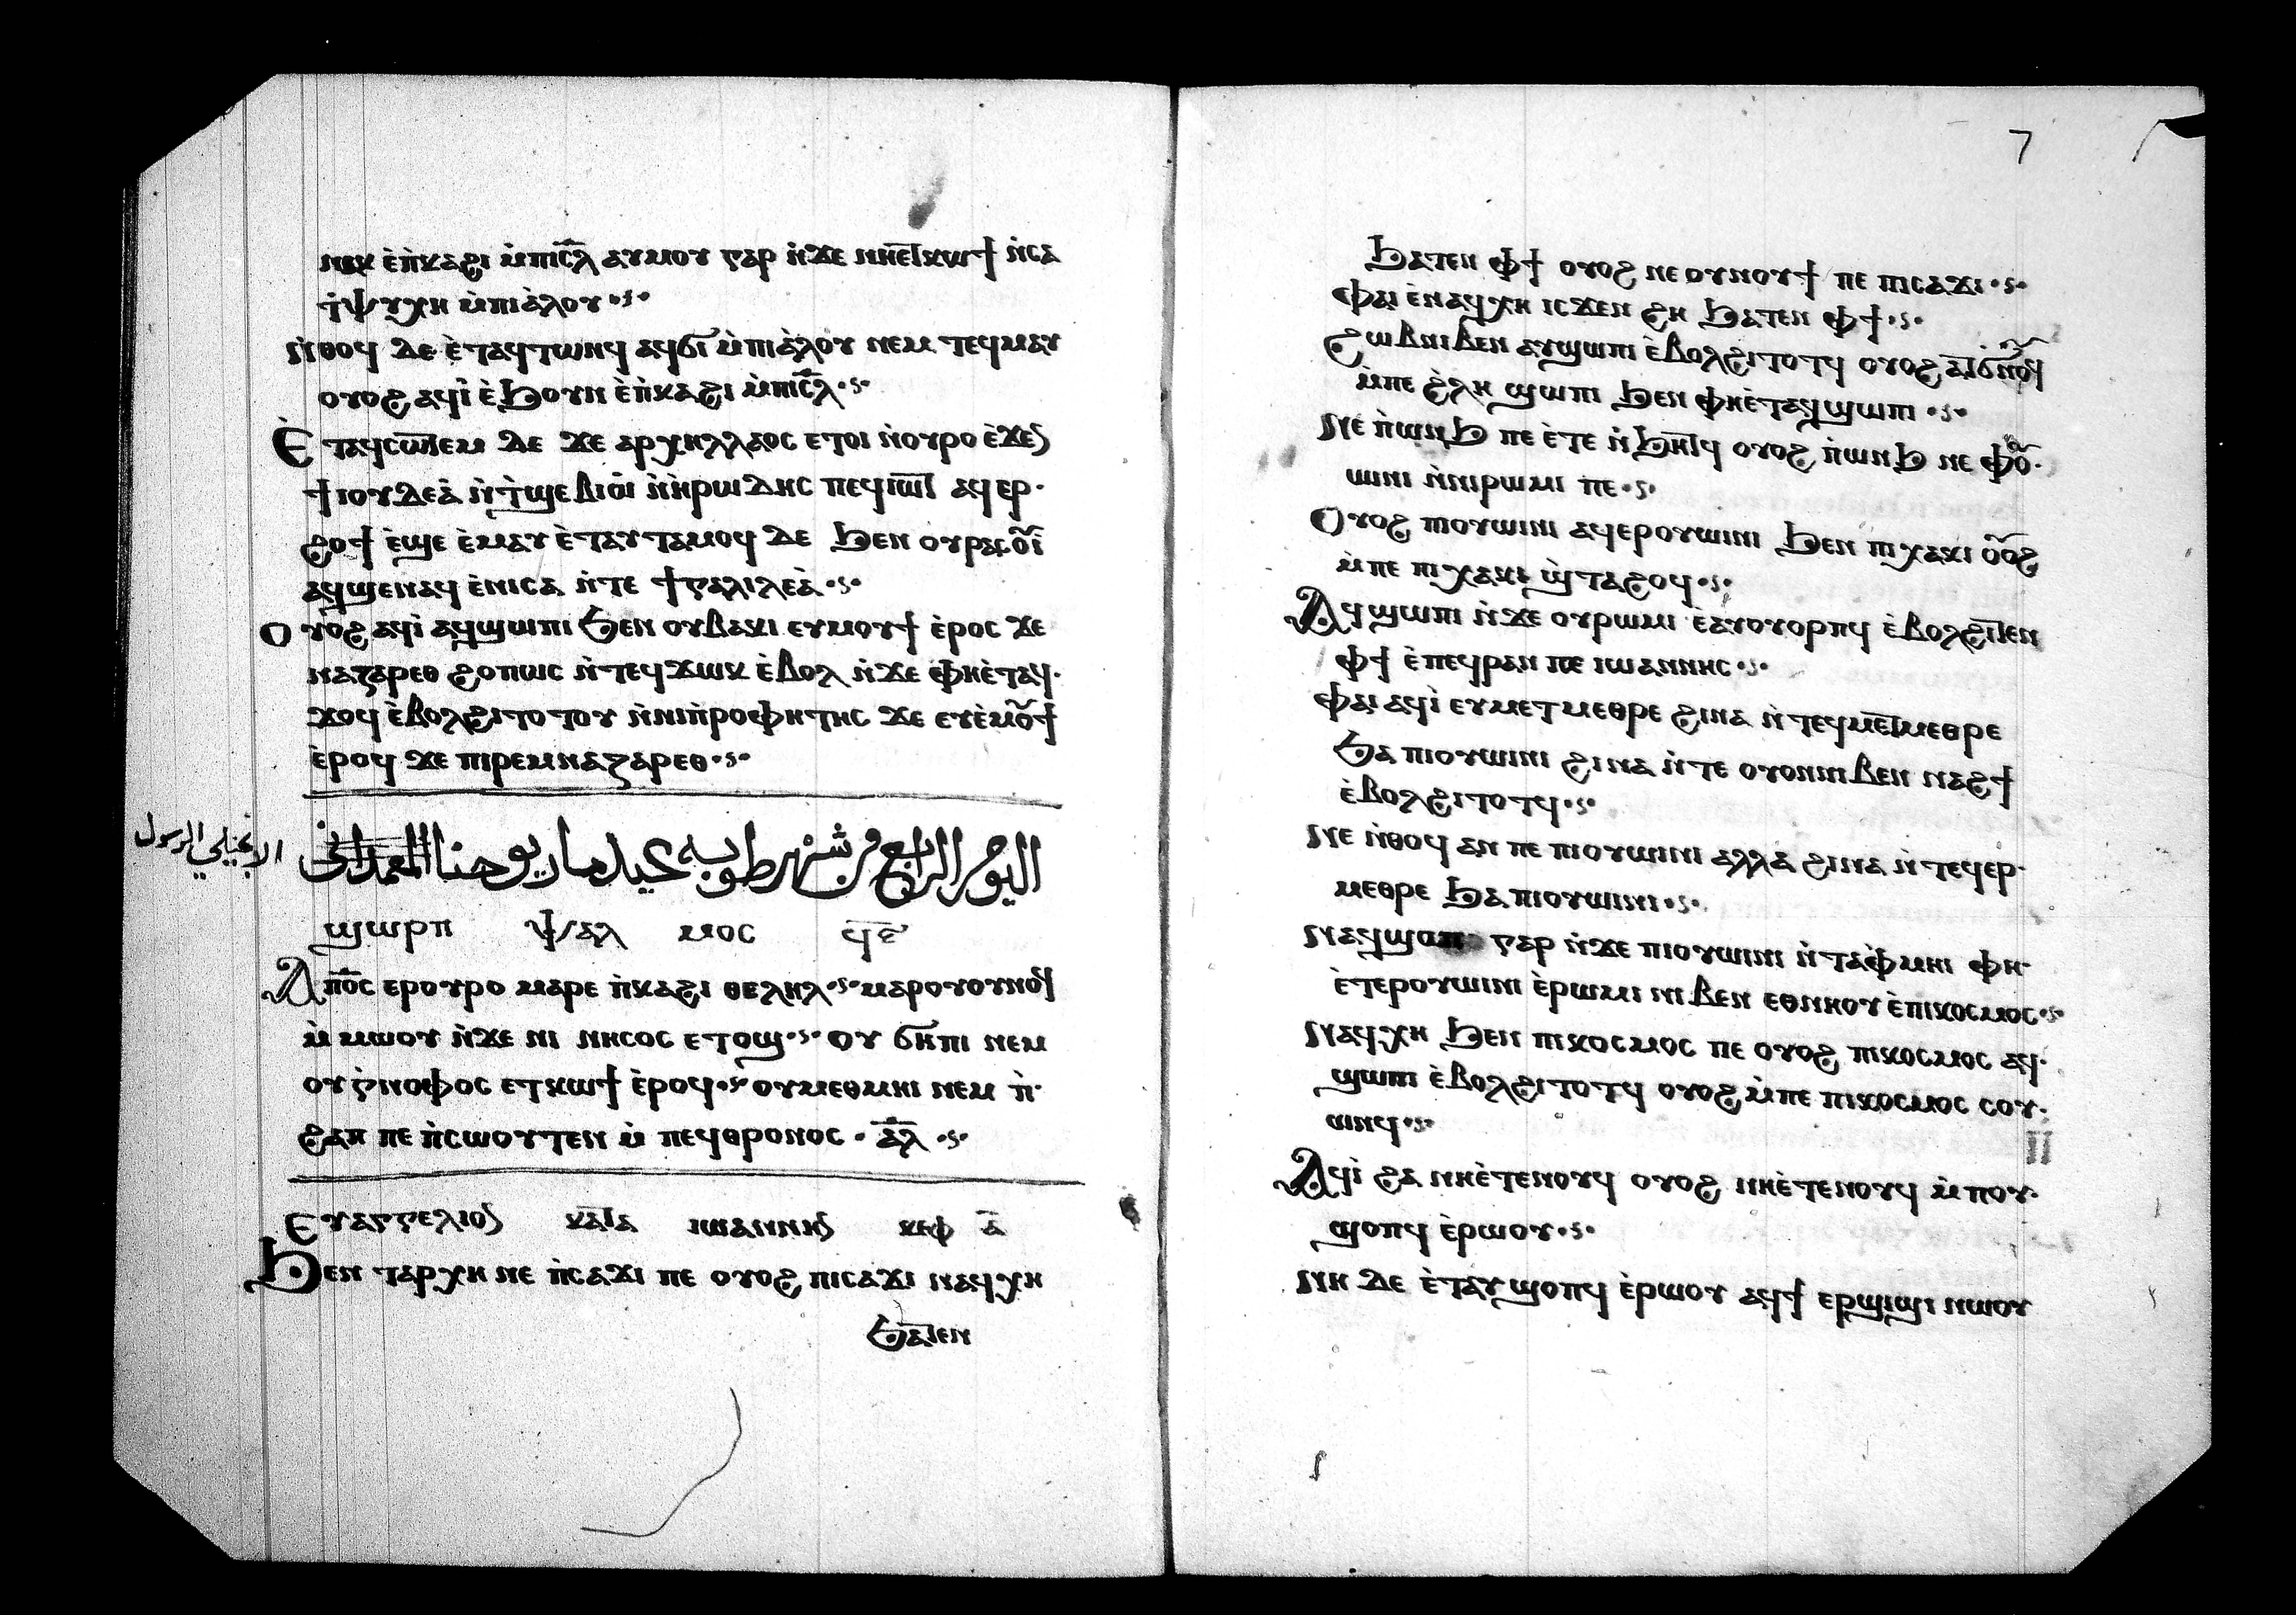 ⲛⲁⲕ ⲉ̀ⲡ̀ⲕⲁϩⲓ ⲙ̀ⲡⲓⲥ̅ⲗ ⲁⲩⲙⲟⲩ ⲅⲁⲣ ⲛ̀ϫⲉ ⲛⲏⲉⲧⲕⲱϯ ⲛ̀ⲥⲁ
ϯⲯⲩⲭⲏ ⲙ̀ⲡⲓⲁ̀ⲗⲟⲩ
ⲛ̀ⲑⲟϥ ⲇⲉ ⲉ̀ⲧⲁϥⲧⲱⲛϥ ⲁϥϭⲓ ⲙ̀ⲡⲓⲁ̀ⲗⲟⲩ ⲛⲉⲙ ⲧⲉϥⲙⲁⲩ
ⲟⲩⲟϩ ⲁϥⲓ̀ ⲉ̀ϧⲟⲩⲛ ⲉ̀ⲡ̀ⲕⲁϩⲓ ⲙ̀ⲡⲓⲥ̅ⲗ
Ⲉ̀ⲧⲁϥⲥⲱⲧⲉⲙ ⲇⲉ ϫⲉ ⲁⲣⲭⲏⲗⲗⲁⲟⲥ ⲉⲧⲟⲓ ⲛ̀ⲟⲩⲣⲟ ⲉ̀ϫⲉⲛ
ϯⲓⲟⲩⲇⲉⲁ̀ ⲛ̀ⲧ̀ϣⲉⲃⲓⲱ̀ ⲛ̀ⲏ̀ⲣⲱⲇⲏⲥ ⲡⲉϥⲓⲱⲧ ⲁϥⲉⲣ
ϩⲟϯ ⲉ̀ϣⲉ ⲉ̀ⲙⲁⲩ ⲉ̀ⲧⲁⲩⲧⲁⲙⲟϥ ⲇⲉ ϧⲉⲛ ⲟⲩⲣⲁⲥⲟⲩⲓ̀
ⲁϥϣⲉⲛⲁϥ ⲉ̀ⲛⲓⲥⲁ ⲛ̀ⲧⲉ ϯⲅⲁⲗⲓⲗⲉⲁ̀
Ⲟⲩⲟϩ ⲁϥⲓ̀ ⲁϥϣⲱⲡⲓ ϧⲉⲛ ⲟⲩⲃⲁⲕⲓ ⲉⲩⲙⲟⲩϯ ⲉ̀ⲣⲟⲥ ϫⲉ
ⲛⲁⲍⲁⲣⲉⲑ ϩⲟⲡⲱⲥ ⲛ̀ⲧⲉϥϫⲱⲕ ⲉ̀ⲃⲟⲗ ⲛ̀ϫⲉ ⲫⲏⲉ̀ⲧⲁϥ
ϫⲟϥ ⲉ̀ⲃⲟⲗϩⲓⲧⲟⲧⲟⲩ ⲛ̀ⲛⲓⲡ̀ⲣⲟⲫⲏⲧⲏⲥ ϫⲉ ⲉⲩⲉ̀ⲙⲟⲩϯ
ⲉ̀ⲣⲟϥ ϫⲉ ⲡⲓⲣⲉⲙⲛⲁⲍⲁⲣⲉⲑ
اليوم الرابع من شهر طوبه عيد ماريوحنا المعمداني
الانجيلي الرسول
ϣⲱⲣⲡ ⲯⲁⲗ ⲙⲟⲥ ϥ̅ⲋ̅
Ⲁⲡ̅ⲟ̅ⲥ ⲉⲣⲟⲩⲣⲟ ⲙⲁⲣⲉ ⲡ̀ⲕⲁϩⲓ ⲑⲉⲗⲏⲗ ⲙⲁⲣⲟⲩⲟⲩⲛⲟϥ
ⲙ̀ⲙⲱⲟⲩ ⲛ̀ϫⲉ ⲛⲓ ⲛⲏⲥⲟⲥ ⲉⲧⲟϣ ⲟⲩ ϭⲏⲡⲓ ⲛⲉⲙ
ⲟⲩⲅ̀ⲛⲟⲫⲟⲥ ⲉⲧⲕⲱϯ ⲉ̀ⲣⲟϥ ⲟⲩⲙⲉⲑⲙⲏⲓ ⲛⲉⲙ ⲡ̀
ϩⲁⲡ ⲡⲉ ⲡ̀ⲥⲱⲟⲩⲧⲉⲛ ⲙ̀ ⲡⲉϥⲑⲣⲟⲛⲟⲥ ⲁ̅ⲗ
Ⲉⲩⲁⲅⲅⲉⲗⲓⲟⲛ ⲕⲁⲧⲁ ⲓⲱⲁⲛⲛⲏⲛ ⲕⲉⲫ ⲁ̅
Ϧⲉⲛ ⲧⲁⲣⲭⲏ ⲛⲉ ⲡ̀ⲥⲁϫⲓ ⲡⲉ ⲟⲩⲟϩ ⲡⲓⲥⲁϫⲓ ⲛⲁϥⲭⲏ
ϧⲁⲧⲉⲛ
7
ϧⲁⲧⲉⲛ ⲫϯ ⲟⲩⲟϩ ⲛⲉ ⲟⲩⲛⲟⲩϯ ⲡⲉ ⲡⲓⲥⲁϫⲓ
ⲫⲁⲓ ⲉ̀ⲛⲁϥⲭⲏ ⲓⲥϫⲉⲛ ϩⲏ ϧⲁⲧⲉⲛ ⲫϯ
ϩⲱⲃⲛⲓⲃⲉⲛ ⲁⲩϣⲱⲡⲓ ⲉ̀ⲃⲟⲗϩⲓⲧⲟⲧϥ ⲟⲩⲟϩ ⲁⲧϭⲛⲟⲩϥ
ⲙ̀ⲡⲉ ϩ̀ⲗⲏ ϣⲱⲡⲓ ϧⲉⲛ ⲫⲏⲉ̀ⲧⲁϥϣⲱⲡⲓ
Ⲛⲉ ⲡ̀ⲱⲛϧ ⲡⲉ ⲉ̀ⲧⲉ ⲛ̀ϧⲏⲧϥ ⲟⲩⲟϩ ⲡ̀ⲱⲛϧ ⲛⲉ ⲫⲟⲩ
ⲱⲓⲛⲓ ⲛ̀ⲛⲓⲣⲱⲙⲓ ⲡⲉ
Ⲟⲩⲟϩ ⲡⲓⲟⲩⲱⲓⲛⲓ ⲁϥⲉⲣⲟⲩⲱⲓⲛⲓ ϧⲉⲛ ⲡⲓⲭⲁⲕⲓ ⲟⲩⲟϩ
ⲙ̀ⲡⲉ ⲡⲓⲭⲁⲕⲓ ϣ̀ⲧⲁϩⲟϥ
Ⲁϥϣⲱⲡⲓ ⲛ̀ϫⲉ ⲟⲩⲣⲱⲙⲓ ⲉ̀ⲁⲩⲟⲩⲟⲣⲡϥ ⲉ̀ⲃⲟⲗϩⲓⲧⲉⲛ
ⲫϯ ⲉ̀ⲡⲉϥⲣⲁⲛ ⲡⲉ ⲓⲱⲁⲛⲛⲏⲥ
ⲫⲁⲓ ⲁϥⲓ̀ ⲉⲩⲙⲉⲧⲙⲉⲑⲣⲉ ϩⲓⲛⲁ ⲛ̀ⲧⲉϥⲙⲉⲧⲙⲉⲑⲣⲉ
ϧⲁ ⲡⲓⲟⲩⲱⲓⲛⲓ ϩⲓⲛⲁ ⲛ̀ⲧⲉ ⲟⲩⲟⲛⲛⲓⲃⲉⲛ ⲛⲁϩϯ
ⲉ̀ⲃⲟⲗϩⲓⲧⲟⲧϥ
Ⲛⲉ ⲛ̀ⲑⲟϥ ⲁⲛ ⲡⲉ ⲡⲓⲟⲩⲱⲓⲛⲓ ⲁⲗⲗⲁ ϩⲓⲛⲁ ⲛ̀ⲧⲉϥⲉⲣ
ⲙⲉⲑⲣⲉ ϧⲁ ⲡⲓⲟⲩⲱⲓⲛⲓ
Ⲛⲁϥϣⲟⲡ ⲅⲁⲣ ⲛ̀ϫⲉ ⲡⲓⲟⲩⲱⲓⲛⲓ ⲛ̀ⲧⲁⲫ̀ⲙⲏⲓ ⲫⲏ
ⲉ̀ⲧⲉⲣⲟⲩⲱⲓⲛⲓ ⲉ̀ⲣⲱⲙⲓ ⲛⲓⲃⲉⲛ ⲉⲑⲛⲏⲟⲩ ⲉ̀ⲡⲓⲕⲟⲥⲙⲟⲥ
Ⲛⲁϥⲭⲏ ϧⲉⲛ ⲡⲓⲕⲟⲥⲙⲟⲥ ⲡⲉ ⲟⲩⲟϩ ⲡⲓⲕⲟⲥⲙⲟⲥ ⲁϥ
ϣⲱⲡⲓ ⲉ̀ⲃⲟⲗϩⲓⲧⲟⲧϥ ⲟⲩⲟϩ ⲙ̀ⲡⲉ ⲡⲓⲕⲟⲥⲙⲟⲥ ⲥⲟⲩ
ⲱⲛϥ
Ⲁϥⲓ̀ ϩⲁ ⲛⲏⲉ̀ⲧⲉⲛⲟⲩϥ ⲟⲩⲟϩ ⲛⲏⲉ̀ⲧⲉⲛⲟⲩϥ ⲙ̀ⲡⲟⲩ
ϣⲟⲡϥ ⲉ̀ⲣⲱⲟⲩ
Ⲛⲏ ⲇⲉ ⲉ̀ⲧⲁⲩϣⲟⲡϥ ⲉ̀ⲣⲱⲟⲩ ⲁϥϯ ⲉⲣϣⲓϣⲓ ⲛⲱⲟⲩ